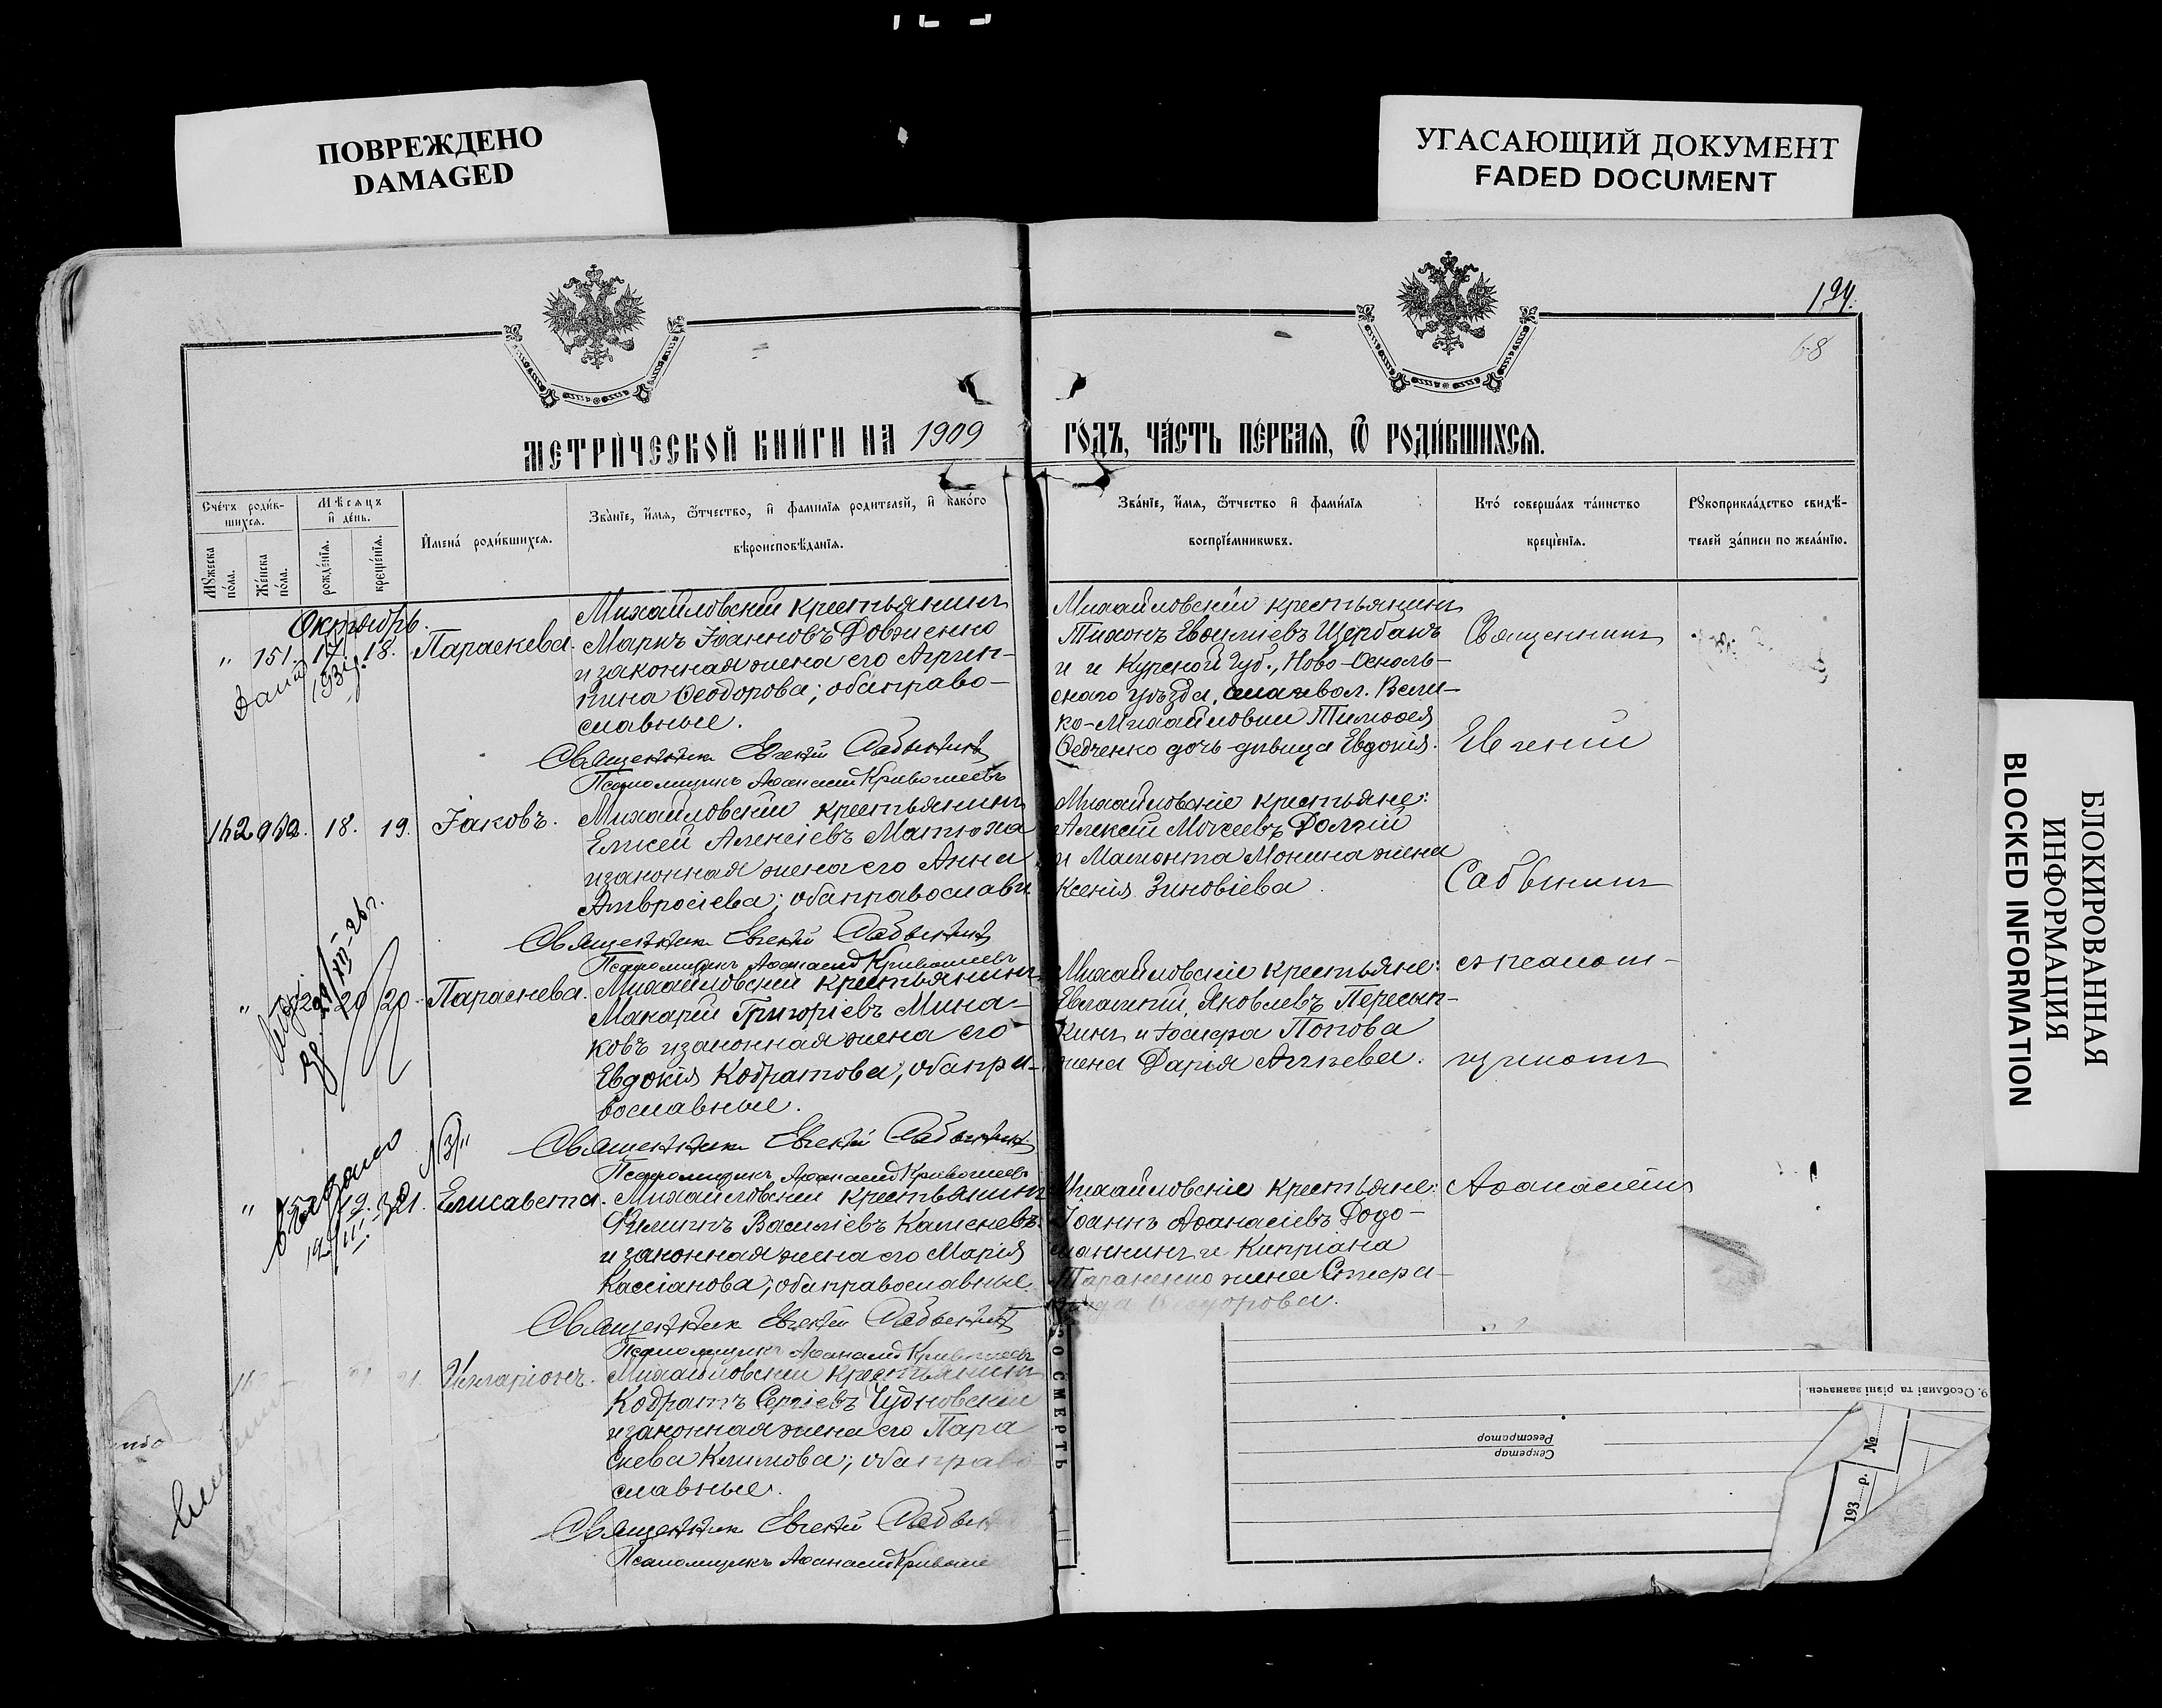 ПОВРЕЖДЕНО
DAMAGED
УГАСАЮЩИЙ ДОКУМЕНТ
FADED DOCUMENT
БЛОКИРОВАННАЯ
ИНФОРМАЦИЯ
BLOCKED INFORMATION
194.
68
МЕТРИЧЕСКОЙ КНИГИ НА 1909
ГОДЪ, ЧАСТЬ ПЕРВАЯ, Ѡ РОДИВШИХСЯ.
Счетъ родив-
шихся.
Мужеска
пола.
Женска
пола.
Мѣсяцъ
и день.
рожденія.
крещенія.
Имена родившихся.
Званіе, имя, ѿтчество, и фамилія родителей, и какого
вѣроисповѣданія.
Званіе, имя, ѿтчество и фамилія
воспріемниковъ.
Кто совершалъ таинство
крещенія.
Рукоприкладство свидѣ-
телей записи по желанію.
Октябрь.
" 151. 17. 18. Параскева.
Михайловскій крестьянинъ
Маркъ Іоанновъ Довженко
и законная жена его Агрип-
пина Ѳеодорова; оба право-
славные.
Священникъ Евгеній Сабынинъ
Псаломщикъ Аѳанасій Кривошеевъ
Михайловскій крестьянинъ
Тихонъ Евѳиміевъ Щербакъ
и Курской губ., Ново-Осколь-
скаго уѣзда, вол. Вели-
ко-Михайловки Тимоѳея
Ѳедченко дочь-дѣвица Евдокія.
Священникъ
Евгеній
Сабынинъ
съ псалом-
щикомъ
Аѳанасіемъ
18. 19. Іаковъ.
Михайловскій крестьянинъ
Елисей Алексіевъ Матюха
и законная жена его Анна
Амвросіева; оба православн.
Священникъ Евгеній Сабынинъ
Псаломщикъ Аѳанасій Кривошеевъ
Михайловскіе крестьяне:
Алексій Моисеевъ Долгій
и Мамонта Монина жена
Ксенія Зиновіева.
" 20 20 Параскева.
Михайловскій крестьянинъ
Макарій Григоріевъ Мина-
ковъ и законная жена его
Евдокія Кодратова; оба пра-
вославные.
Священникъ Евгеній Сабынинъ
Псаломщикъ Аѳанасій Кривошеевъ
Михайловскіе крестьяне:
Евлампій Яковлевъ Пересып-
кинъ и Іосифа Попова
жена Дарія Агіева.
" 19. 21. Елисавета.
Михайловскій крестьянинъ
Филиппъ Василіевъ Каменевъ
и законная жена его Марія
Кассіанова; оба православные
Священникъ Евгеній Сабынинъ
Псаломщикъ Аѳанасій Кривошеевъ
Михайловскіе крестьяне:
Іоаннъ Аѳанасіевъ Додо-
маннинъ и Кипріана
Тараненко жена Стефа-
нида Ѳеодорова.
21. Илларіонъ.
Михайловскій крестьянинъ
Кодратъ Сергіевъ Чудновскій
и законная жена его Пара
скева Климова; оба право
славные.
Священникъ Евгеній Сабын
Псаломщикъ Аѳанасій Кривоше
СМЕРТЬ
9. Особливі та різні зазначен.
Секретар
Реєстратор
№
193 р.